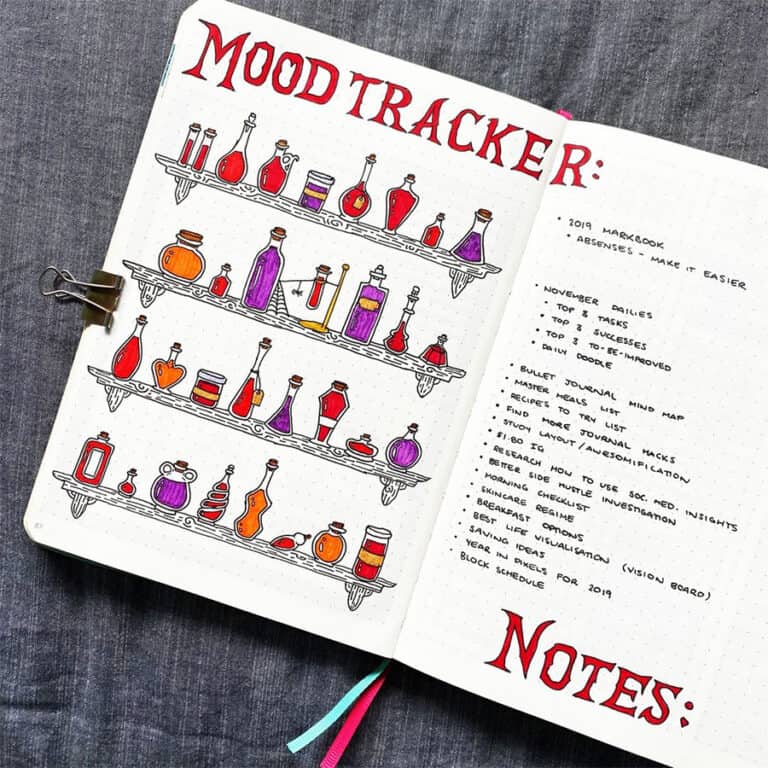 MOOD TRACKER:
• 2019 MARKBOOK
• ABSENSES - MAKE IT EASIER
• NOVEMBER DAILIES
• TOP 3 TASKS
• TOP 3 SUCCESSES
• TOP 3 TO-BE-IMPROVED
• DAILY DOODLE
• BULLET JOURNAL MIND MAP
• MASTER MEALS LIST
• RECIPE'S TO TRY LIST
• FIND MORE JOURNAL HACKS
• STUDY LAYOUT/AWESOMIFICATION
• $1.80 IG
• RESEARCH HOW TO USE SOC. MED. INSIGHTS
• BETTER SIDE HUSTLE INVESTIGATION
• MORNING CHECKLIST
• SKINCARE REGIME
• BREAKFAST OPTIONS
• BEST LIFE VISUALISATION (VISION BOARD)
• SAVING IDEAS
• YEAR IN PIXELS FOR 2019
• BLOCK SCHEDULE
NOTES: